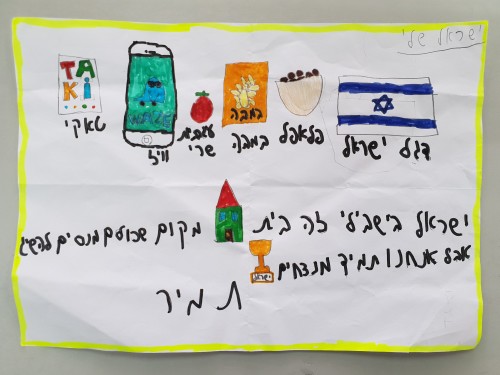 ישראל שלי
TA
Ki
במבה
טאקי
וויז
עגבנית
שרי
במבה
פלאפל
דגל ישראל
ישראל בישבילי זה בית מקום שכולם מנסים להשיג
אבל אנחנו תמיד מנצחים
ישראל
תמיר